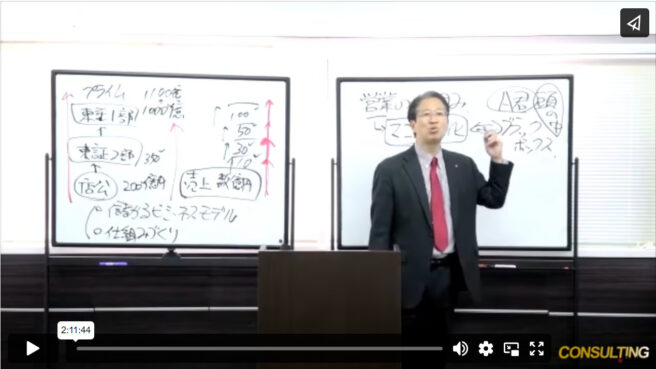 プライム 1100億
1000億
東証1部
東証2部 350
店公 200億円
儲かるビジネスモデル
仕組みづくり
100
50
30
10
売上 数億円
営業
A君 頭の中
マニュアル ⇔ ブラック
ボックス
2:11:44
CONSULTING